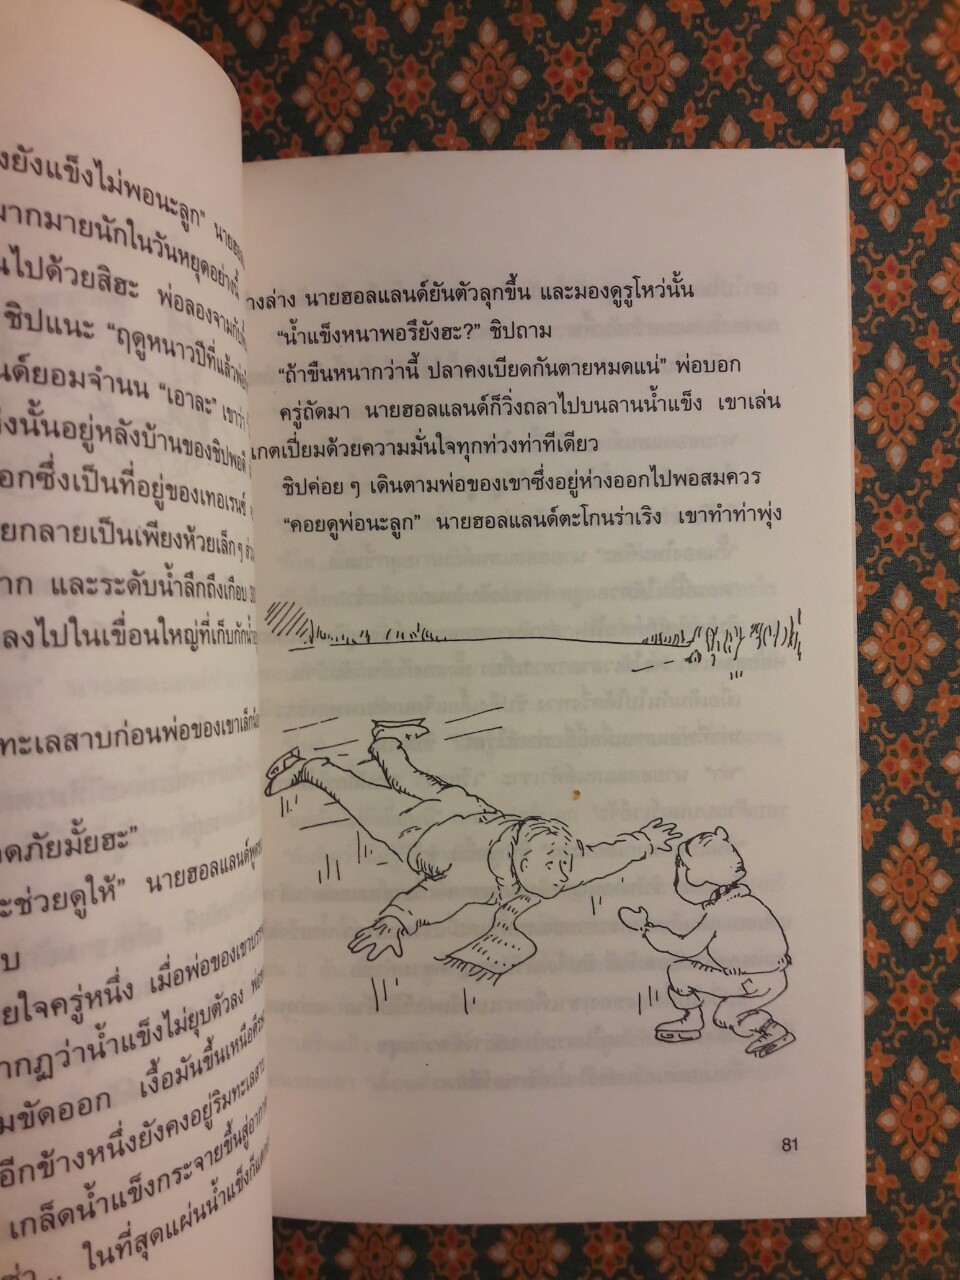 งยังแข็งไม่พอนะลูก” นายฮอล
มากมายนักในวันหยุดอย่างนี้
นไปด้วยสิฮะ พ่อลองจาม
ชิปแนะ “ฤดูหนาวปีที่แล้วพ่อ
นด์ยอมจำนน “เอาละ” เขาว่า
งนั้นอยู่หลังบ้านของชิปพอดี
อกซึ่งเป็นที่อยู่ของเทอเรนซ์
ยกลายเป็นเพียงห้วยเล็กๆ
าก และระดับน้ำลึกถึงเกือบ
ลงไปในเขื่อนใหญ่ที่เก็บกักน้ำ
ทะเลสาบก่อนพ่อของเขาเล็กน้อย
ดภัยมั้ยฮะ”
ะช่วยดูให้” นายฮอลแลนด์พูด
บ
ยใจครู่หนึ่ง เมื่อพ่อของเขา
ากฏว่าน้ำแข็งไม่ยุบตัวลง
มขัดออก เงื้อมันขึ้นเหนือศีรษะ
อีกข้างหนึ่งยังคงอยู่ริมทะเลสาบ
เกล็ดน้ำแข็งกระจายขึ้นสู่อากาศ
ในที่สุดแผ่นน้ำแข็งก็
างล่าง นายฮอลแลนด์ยันตัวลุกขึ้น และมองดูรูโหว่นั้น
“น้ำแข็งหนาพอรึยังฮะ?” ชิปถาม
“ถ้าขืนหนากว่านี้ ปลาคงเบียดกันตายหมดแน่” พ่อบอก
ครู่ถัดมา นายฮอลแลนด์ก็วิ่งถลาไปบนลานน้ำแข็ง เขาเล่น
เกตเปี่ยมด้วยความมั่นใจทุกท่วงท่าทีเดียว
ชิปค่อย ๆ เดินตามพ่อของเขาซึ่งอยู่ห่างออกไปพอสมควร
“คอยดูพ่อนะลูก” นายฮอลแลนด์ตะโกนร่าเริง เขาทำท่าพุ่ง
81